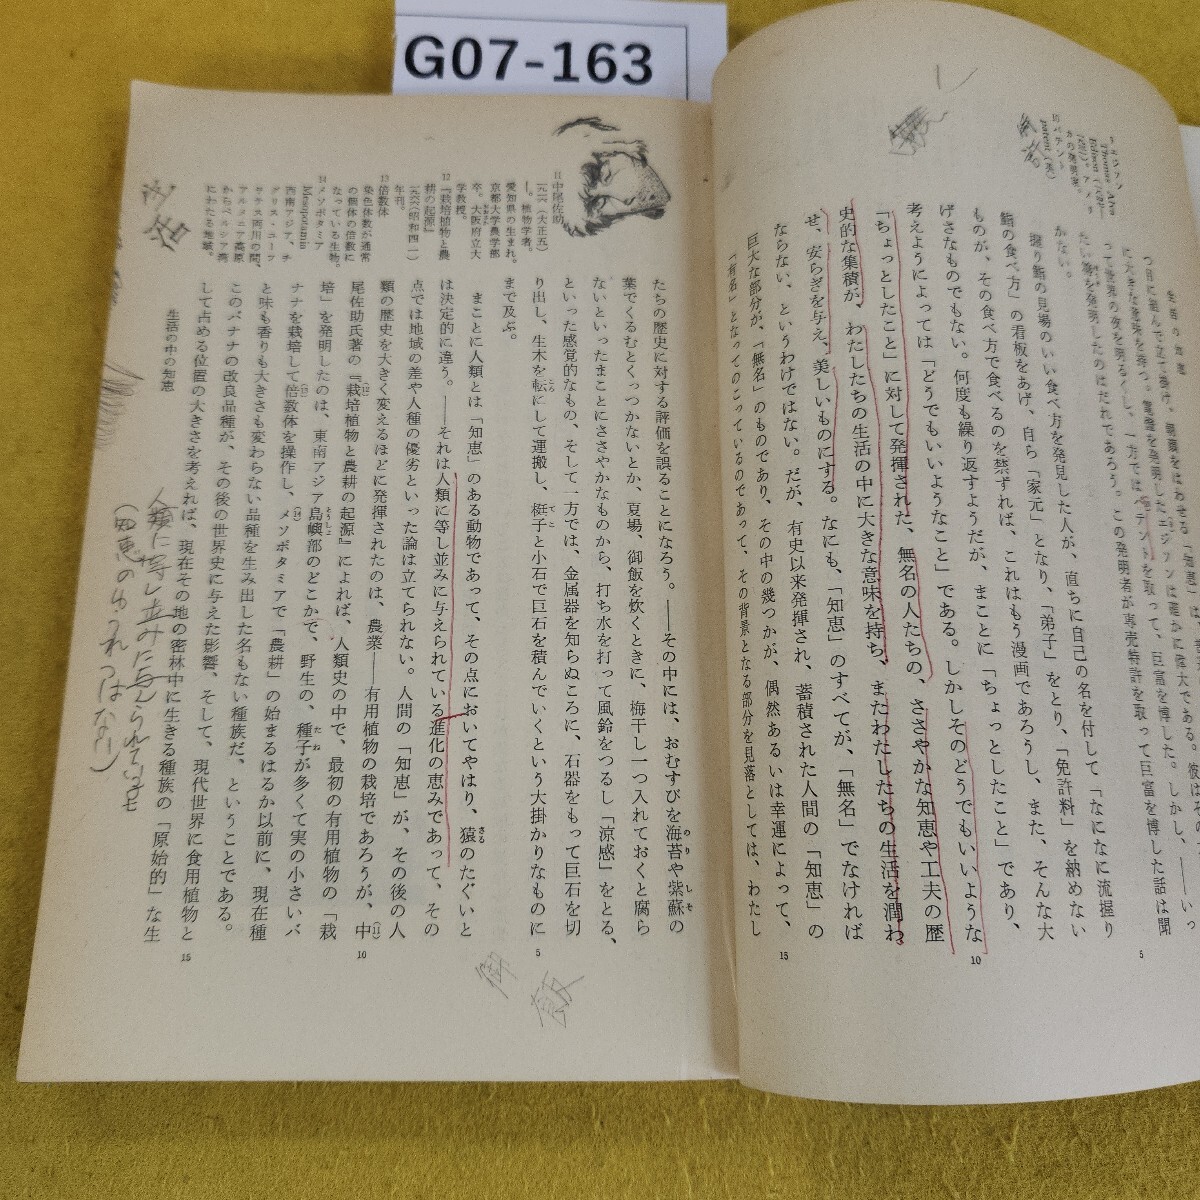 G07-163
つ目に組んで立て掛け、親頭をはわせる「知恵」は、
に大きな意味を持つ。電燈を発明したエジソンは確かに偉大だろう。彼はその
って世界の夜を明るくし、一方ではパテントを取って、巨富を博した。しかし、――いっ
たい鮨を発明したのはだれであろう。この発明者が専売特許を取って巨富を博した話は聞
かない。
握り鮨の見場のいい食べ方を発見した人が、直ちに自己の名を付して「なになに流握り
鮨の食べ方」の看板をあげ、自ら「家元」となり、「弟子」をとり、「免許料」を納めない
ものが、その食べ方で食べるのを禁ずれば、これはもう漫画であろうし、また、そんな大
げさなものでもない。何度も繰り返すようだが、まことに「ちょっとしたこと」であり、
考えようによっては「どうでもいいようなこと」である。しかしそのどうでもいいような
「ちょっとしたこと」に対して発揮された、無名の人たちの、ささやかな知恵や工夫の歴
史的な集積が、わたしたちの生活の中に大きな意味を持ち、またわたしたちの生活を潤わ
せ、安らぎを与え、美しいものにする。なにも、「知恵」のすべてが、「無名」でなければ
ならない、というわけではない。だが、有史以来発揮され、蓄積された人間の「知恵」の
巨大な部分が、「無名」のものであり、その中の幾つかが、偶然あるいは幸運によって、
「有名」となってのこっているのであって、その背景となる部分を見落としては、わたし
5
10
15
たちの歴史に対する評価を誤ることになろう。――その中には、おむすびを海苔や紫蘇の
葉でくるむとくっつかないとか、夏場、御飯を炊くときに、梅干し一つ入れておくと腐ら
ないといったまことにささやかなものから、打ち水を打って風鈴をつるし「涼感」をとる、
といった感覚的なもの、そして一方では、金属器を知らぬころに、石器をもって巨石を切
り出し、生木を転にして運搬し、梃子と小石で巨石を積んでいくという大掛かりなものに
まで及ぶ。
まことに人類とは「知恵」のある動物であって、その点においてやはり、猿のたぐいと
は決定的に違う。――それは人類に等し並みに与えられている進化の恵みであって、その
点では地域の差や人種の優劣といった論は立てられない。人間の「知恵」が、その後の人
類の歴史を大きく変えるほどに発揮されたのは、農業――有用植物の栽培であろうが、中
尾佐助氏著の『栽培植物と農耕の起源』によれば、人類史の中で、最初の有用植物の「栽
培」を発明したのは、東南アジア島嶼部のどこかで、野生の、種子が多くて実の小さいバ
ナナを栽培して倍数体を操作し、メソポタミアで「農耕」の始まるはるか以前に、現在種
と味も香りも大きさも変わらない品種を生み出した名もない種族だ、ということである。
このバナナの改良品種が、その後の世界史に与えた影響、そして、現代世界に食用植物と
して占める位置の大きさを考えれば、現在その地の密林中に生きる種族の「原始的」な生
5
10
15
11 中尾佐助
一九一六(大正五)
―。植物学者。
愛知県の生まれ。
京都大学農学部
卒。大阪府立大
学教授。
12 『栽培植物と農
耕の起源』
一九六六(昭和四一)
年刊。
13 倍数体
染色体数が通常
の個体の倍数に
なっている生物。
14 メソポタミア
Mesopotamia
西南アジア、チ
グリス・ユーフ
ラテス両川の間、
アルメニア高原
からペルシア湾
にわたる地域。
生活の中の知恵
人類に等し並みに与えられている
(知恵のわかれつはない)
御飯